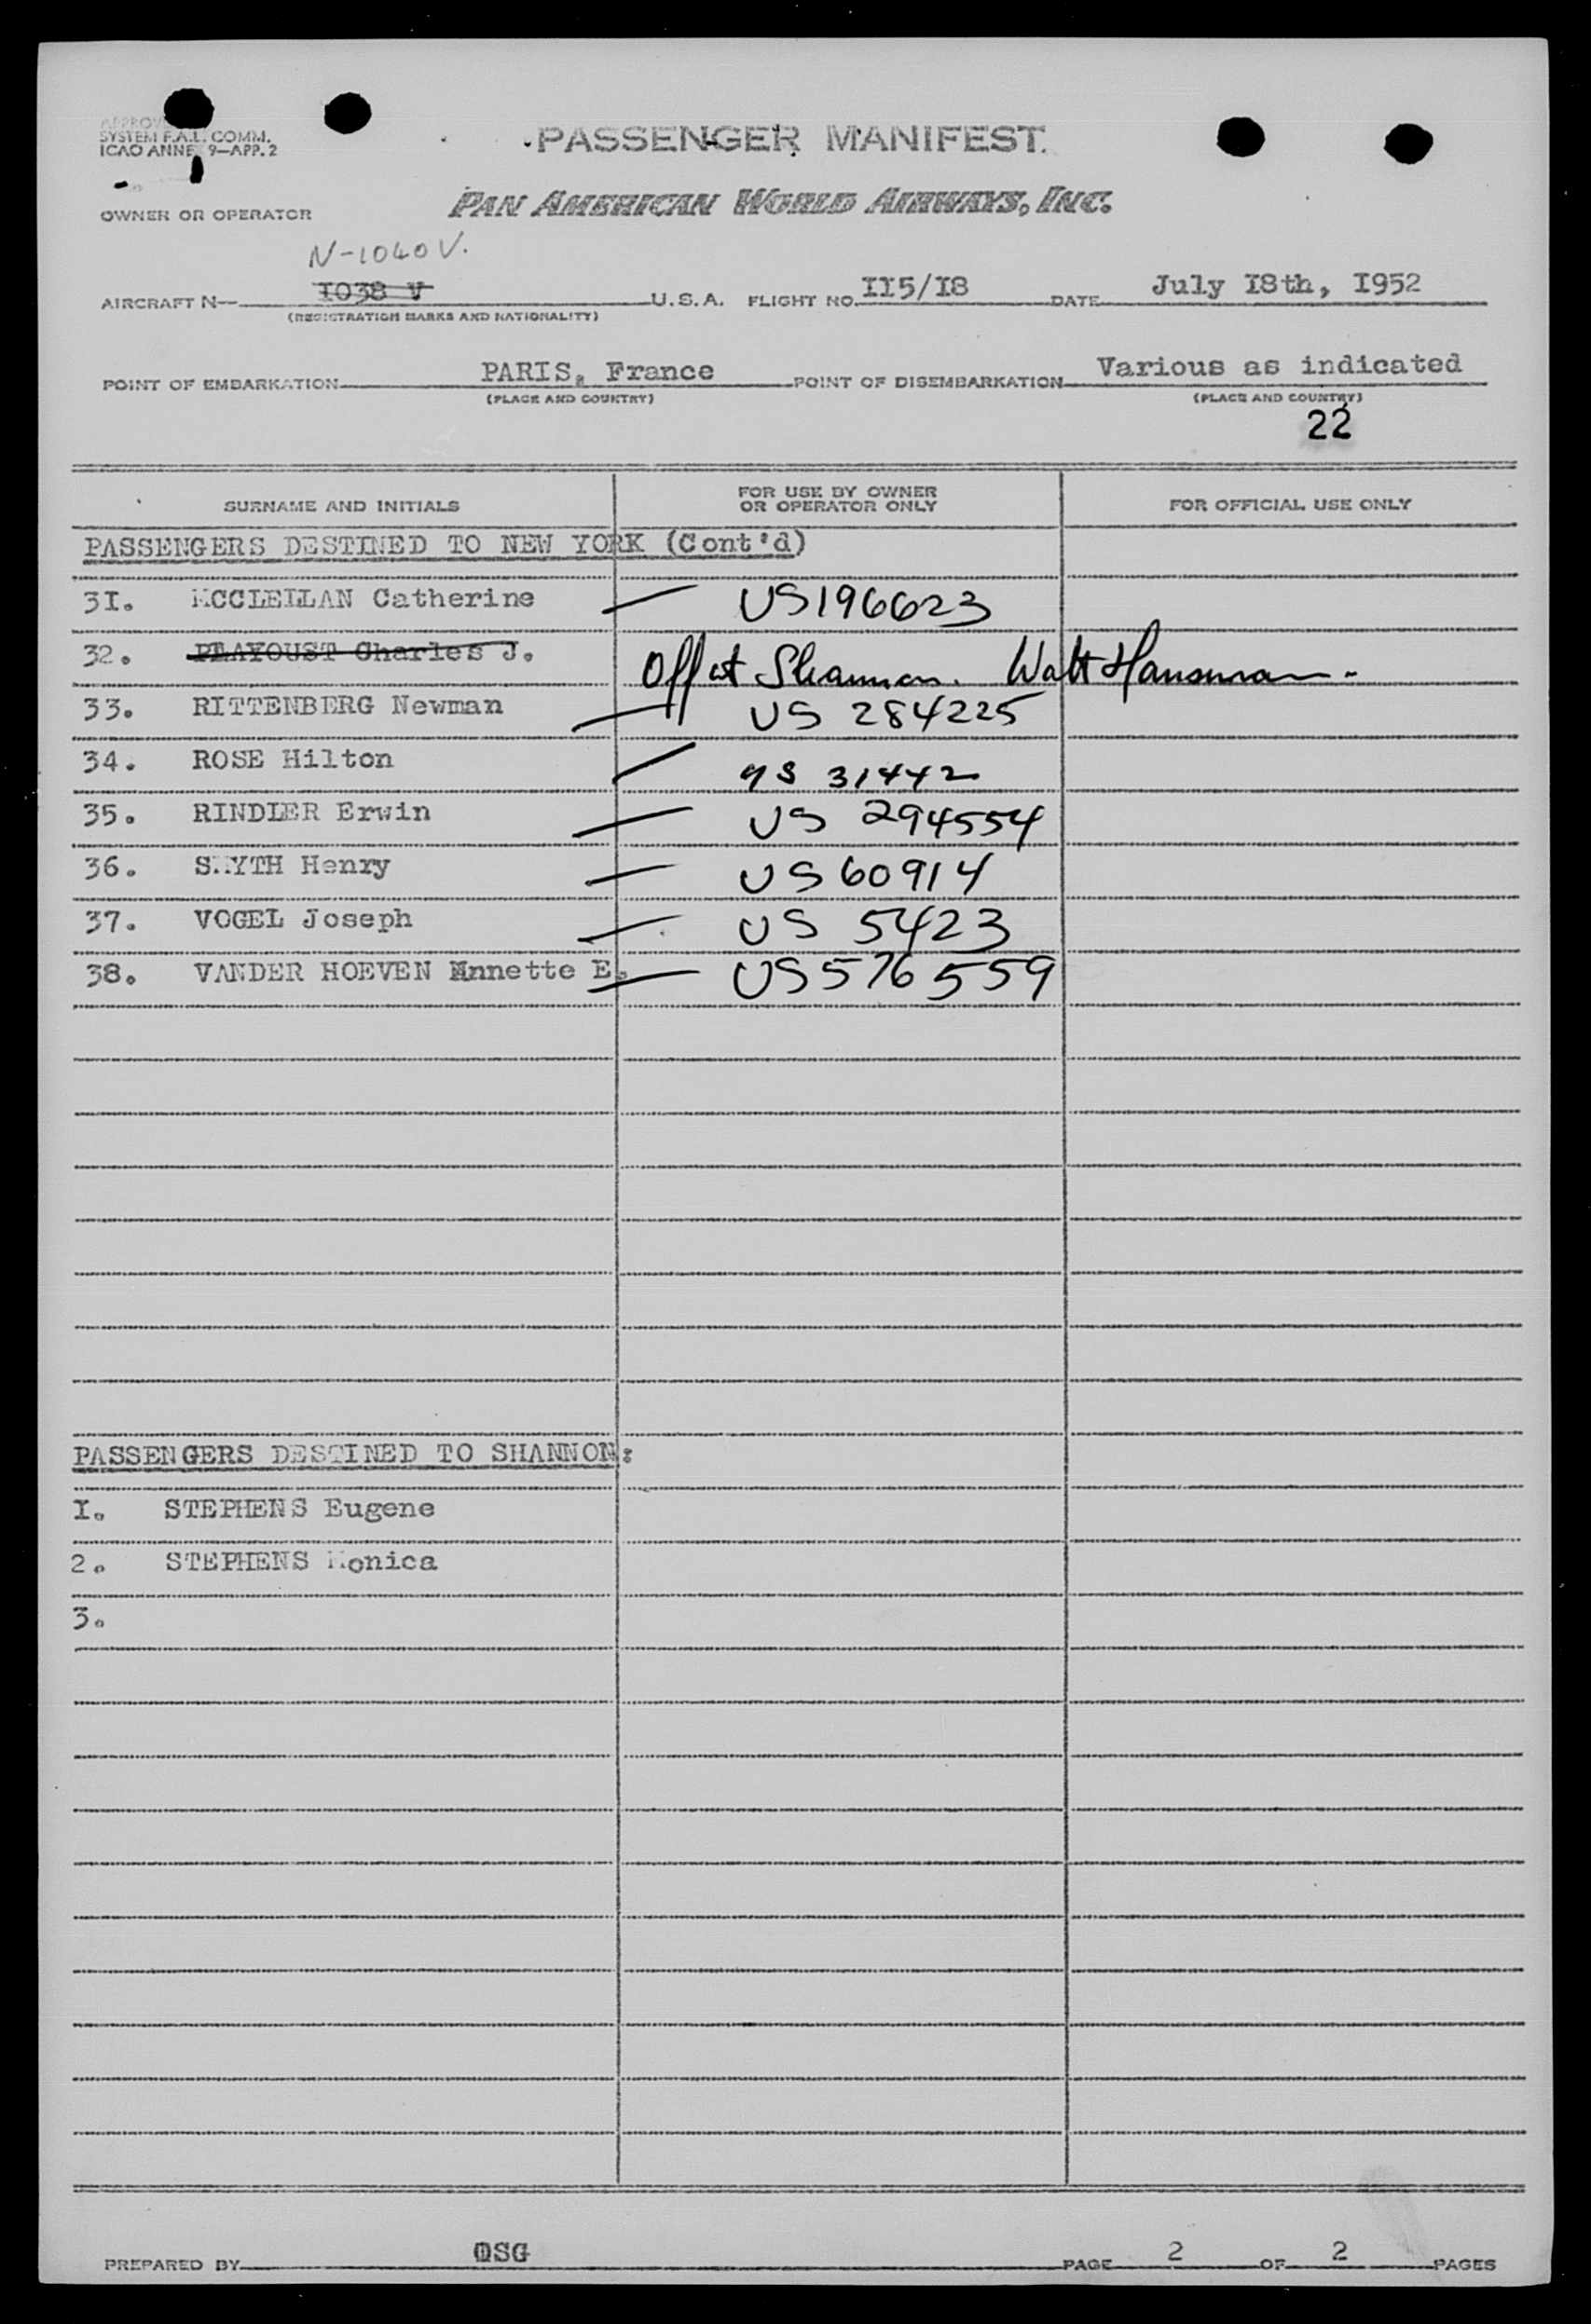 SYSTEM F.A.L. COMM.
ICAO ANNE 9—APP. 2
PASSENGER MANIFEST
OWNER OR OPERATOR
PAN AMERICAN WORLD AIRWAYS, INC.
N-1040 V.
AIRCRAFT N— I038 V U.S.A. FLIGHT NO. II5/I8 DATE July I8th, I952
(REGISTRATION MARKS AND NATIONALITY)
POINT OF EMBARKATION PARIS, France POINT OF DISEMBARKATION Various as indicated
(PLACE AND COUNTRY) (PLACE AND COUNTRY)
22
SURNAME AND INITIALS FOR USE BY OWNER OR OPERATOR ONLY FOR OFFICIAL USE ONLY
PASSENGERS DESTINED TO NEW YORK (Cont'd)
3I. MCCLELLAN Catherine — US196623
32. PLAYOUST Charles J. Off at Shannon. Walt Hansman.
33. RITTENBERG Newman — US 284225
34. ROSE Hilton — US 31442
35. RINDLER Erwin — US 294554
36. SMYTH Henry — US 60914
37. VOGEL Joseph — US 5423
38. VANDER HOEVEN Annette E. — US 576559
PASSENGERS DESTINED TO SHANNON:
I. STEPHENS Eugene
2. STEPHENS Monica
3.
PREPARED BY OSG PAGE 2 OF 2 PAGES